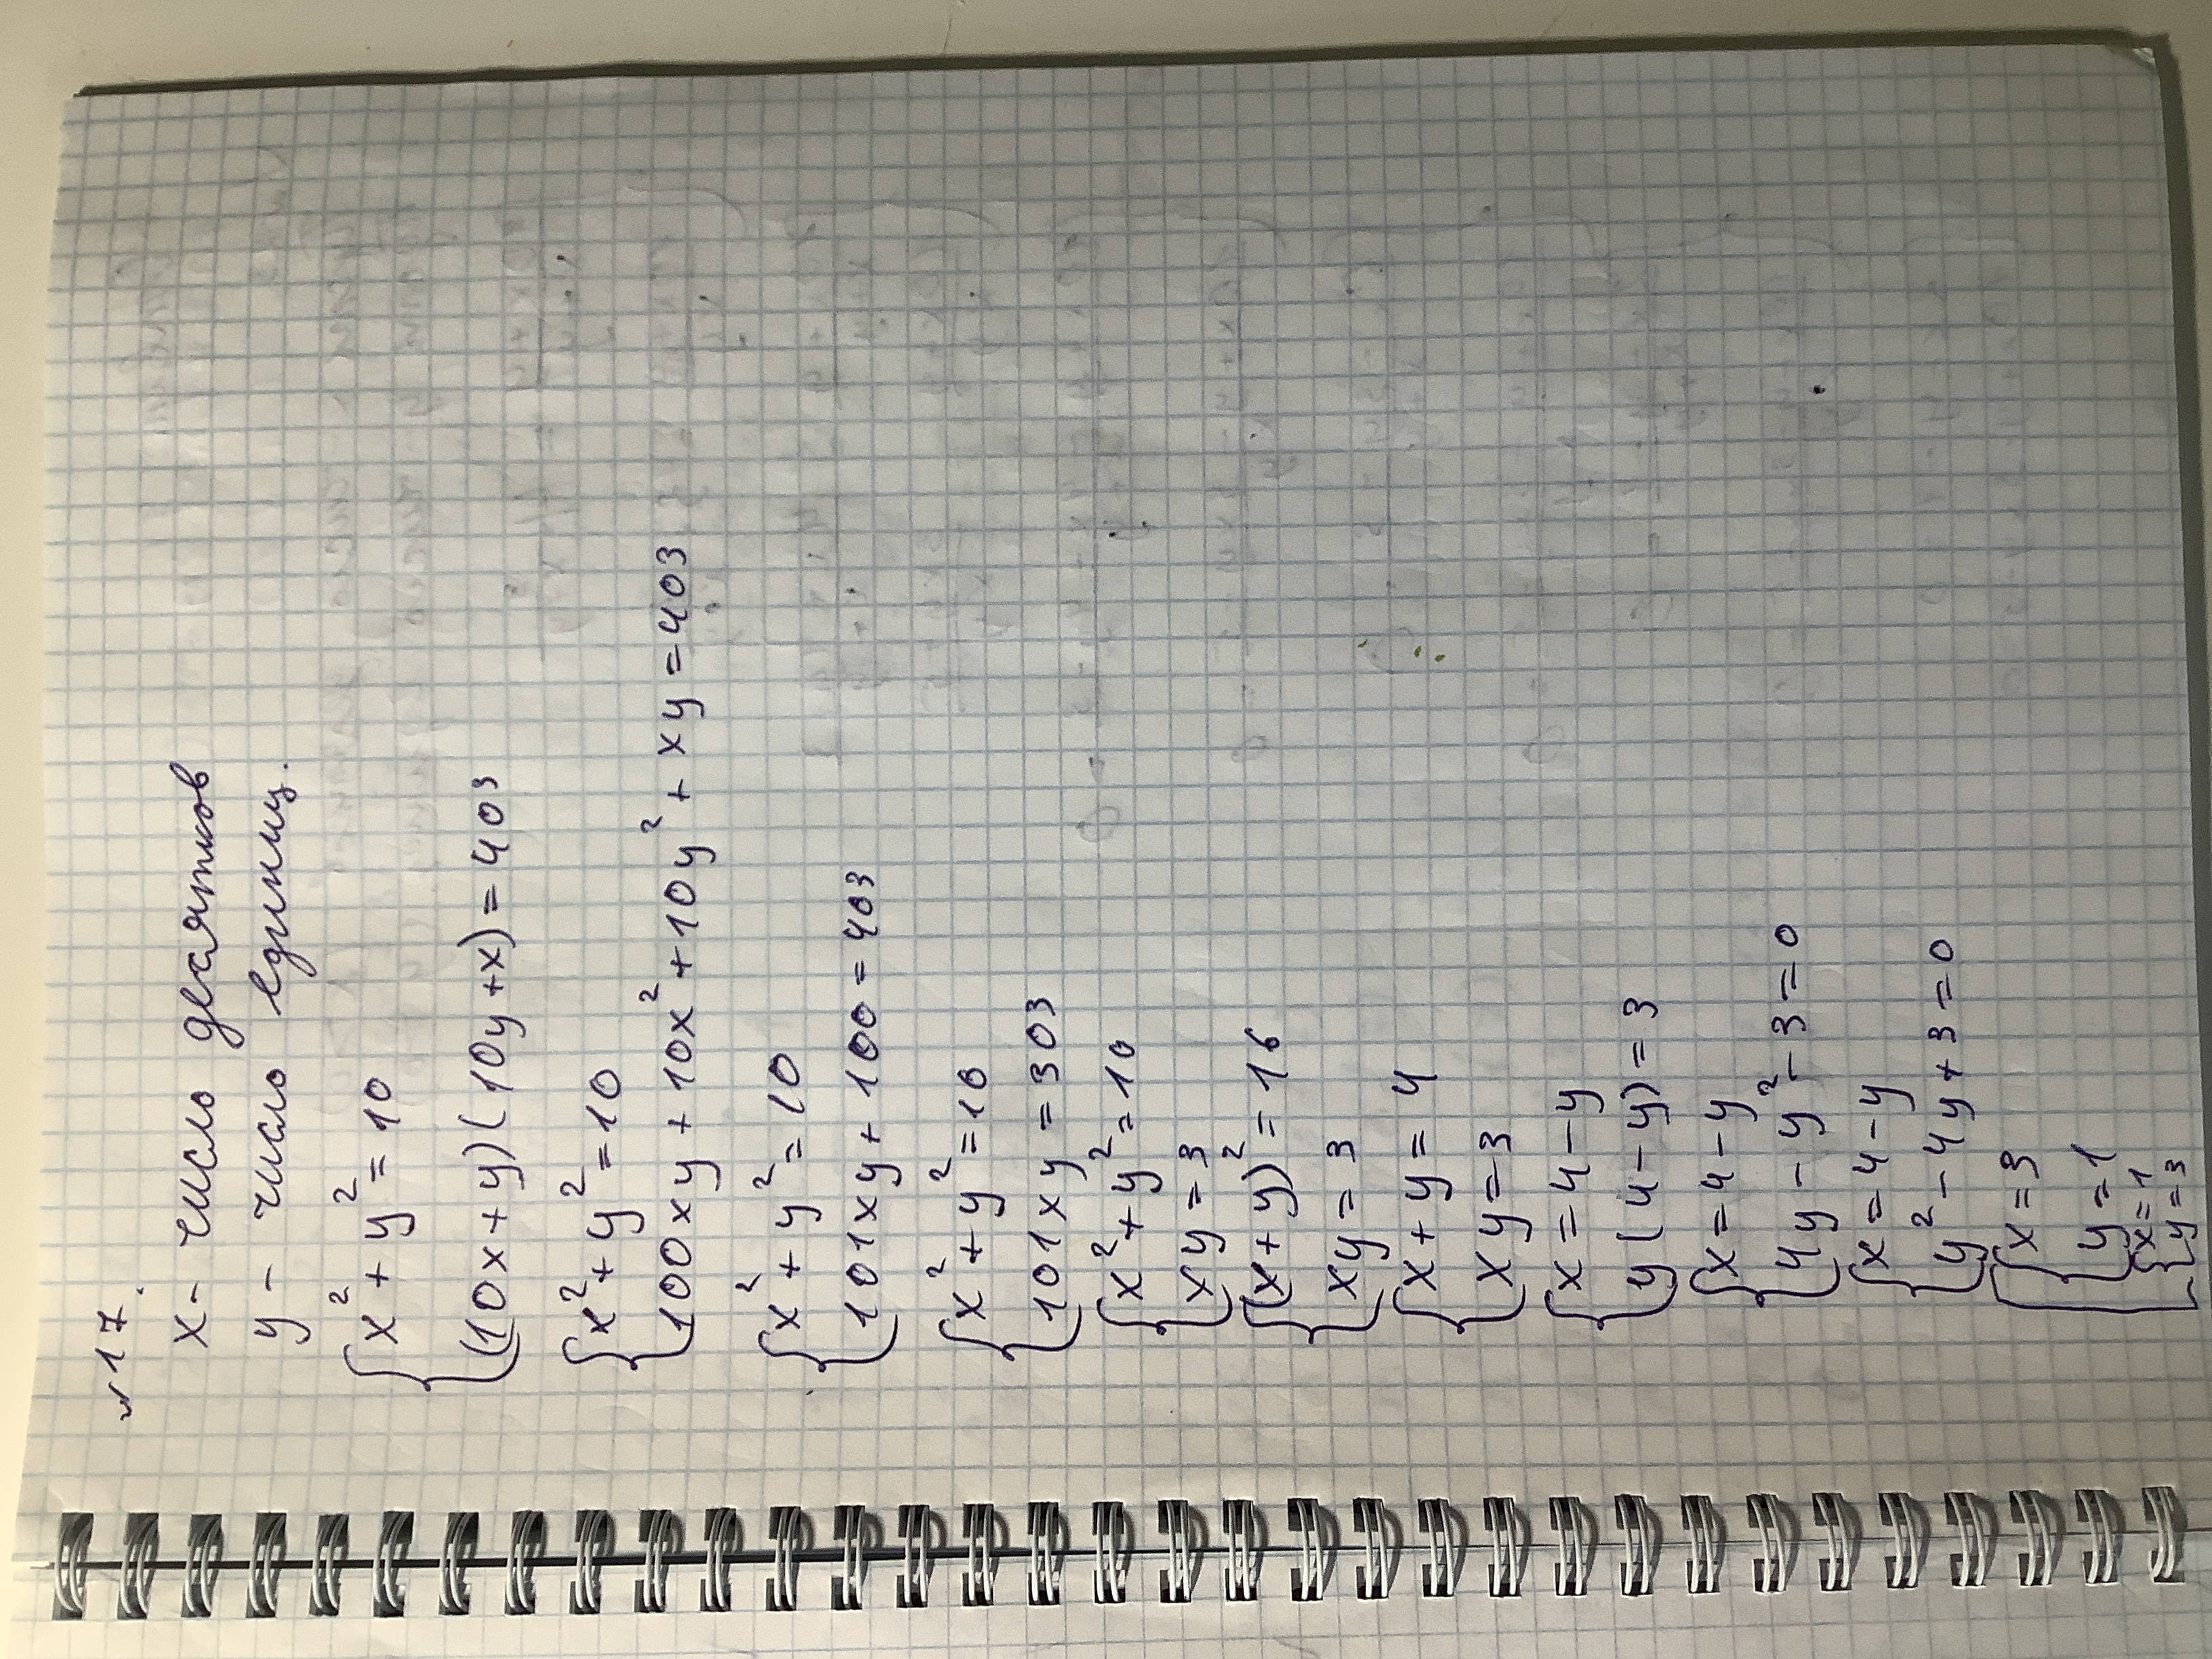 №17.
x - число десятков
y - число единиц.
{x² + y² = 10
{(10x + y)(10y + x) = 403
{x² + y² = 10
{100xy + 10x² + 10y² + xy = 403
{x² + y² = 10
{101xy + 100 = 403
{x² + y² = 10
{101xy = 303
{x² + y² = 10
{xy = 3
{(x + y)² = 16
{xy = 3
{x + y = 4
{xy = 3
{x = 4 - y
{y(4 - y) = 3
{x = 4 - y
{4y - y² - 3 = 0
{x = 4 - y
{y² - 4y + 3 = 0
[{x = 3
{y = 1
{x = 1
{y = 3